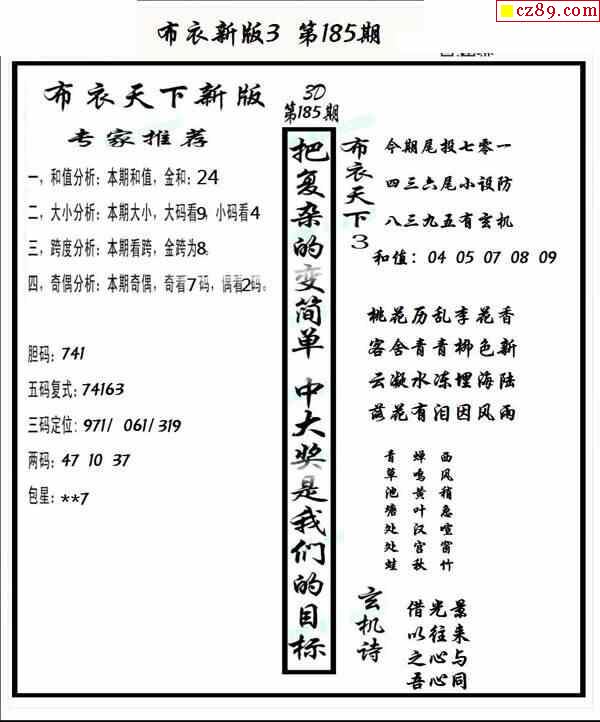 cz89.com
布衣新版3 第185期
布衣天下新版
专家推荐
一，和值分析：本期和值，金和：24
二，大小分析：本期大小，大码看9，小码看4
三，跨度分析：本期看跨，金跨为8。
四，奇偶分析：本期奇偶，奇看7码，偶看2码。
胆码：741
五码复式：74163
三码定位：971/ 061/319
两码：47 10 37
包星：**7
3D
第185期
把复杂的变简单 中大奖是我们的目标
布衣天下3
今期尾投七零一
四三六尾小设防
八三九五有玄机
和值：04 05 07 08 09
桃花历乱李花香
客舍青青柳色新
云凝水冻埋海陆
落花有泪因风雨
西风稍急喧窗竹
蝉鸣黄叶汉宫秋
青草池塘处处蛙
玄机诗
借光景
以往来
之心与
吾心同